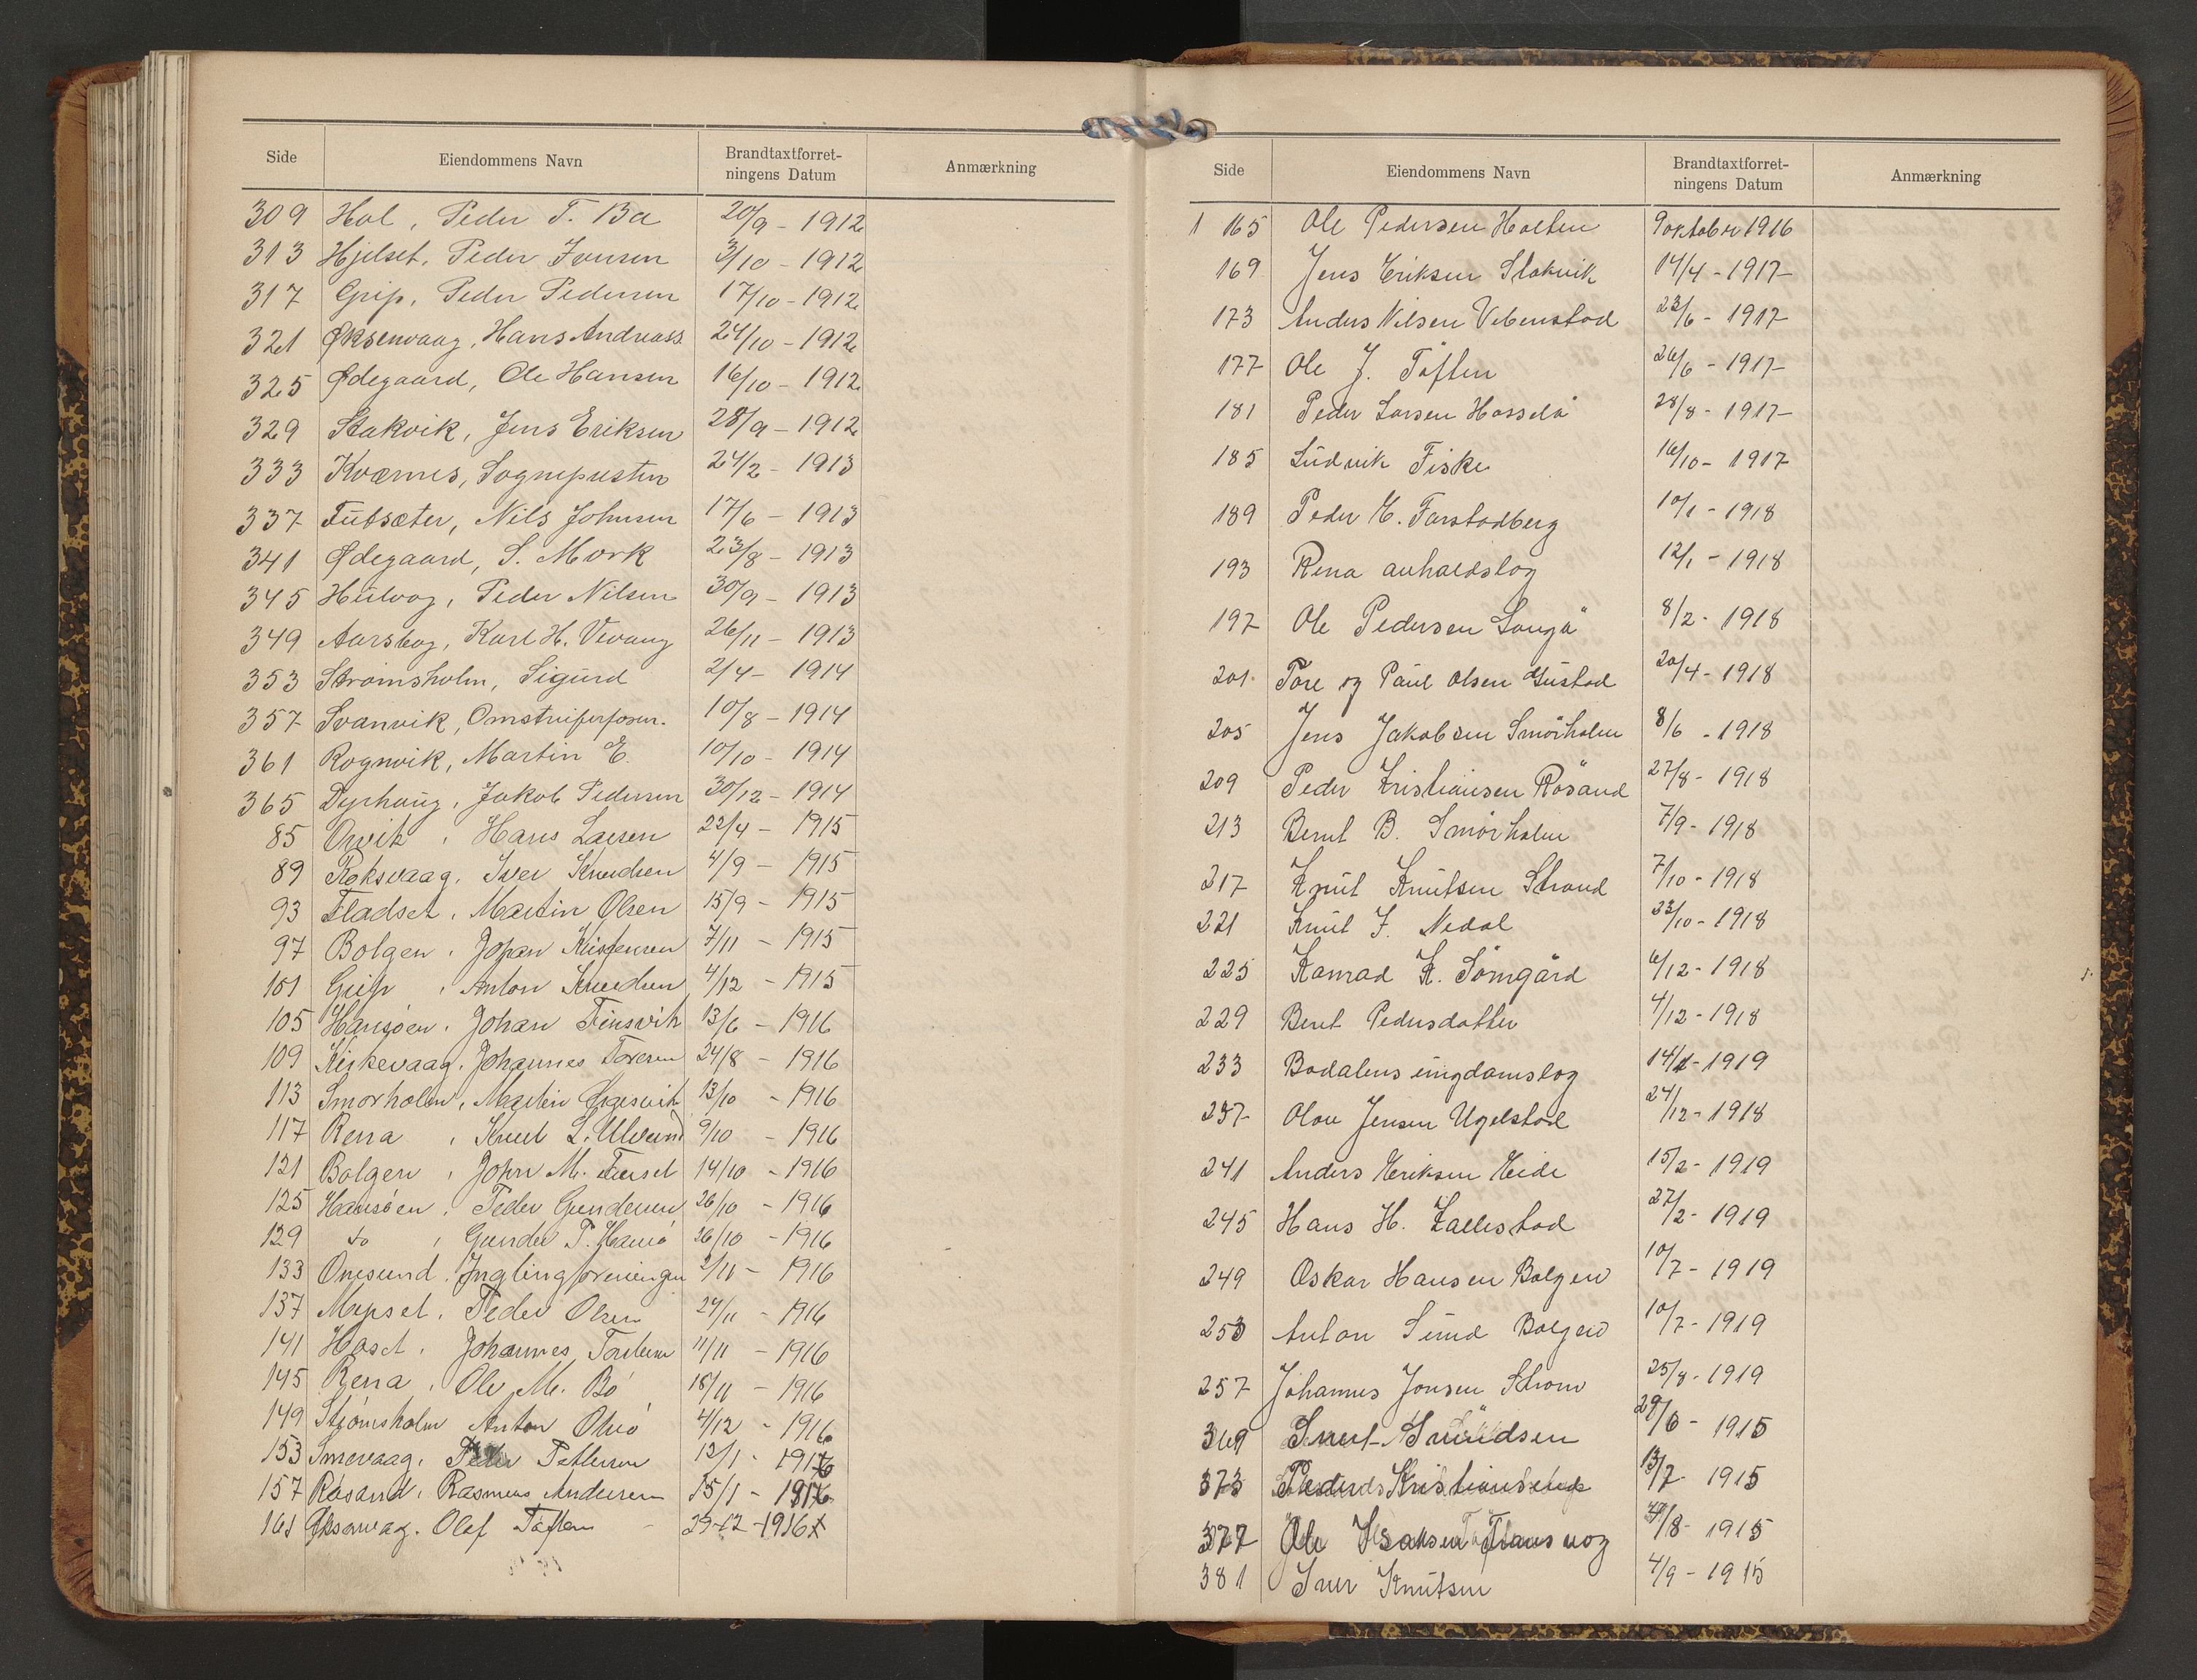 Side Eiendommens Navn Brandtaxtforret-ningens Datum Anmærkning
309 Hol, Peder T. Bø 20/9 - 1912
313 Hjelset, Peder Iversen 3/10 - 1912
317 Grip, Peder Pedersen 17/10 - 1912
321 Øksenvaag, Hans Andreass. 24/10 - 1912
325 Ødegaard, Ole Hansen 16/10 - 1912
329 Stakvik, Jens Eriksen 28/9 - 1912
333 Kværnes, Sognepresten 24/2 - 1913
337 Futsæter, Nils Johnsen 17/6 - 1913
341 Ødegaard, S. Mork 23/8 - 1913
345 Hulvag, Peder Nilsen 30/9 - 1913
349 Aarsbog, Karl H. Vevang 26/11 - 1913
353 Strømsholm, Sigurd 2/4 - 1914
357 Svanvik, 10/8 - 1914
361 Rognvik, Martin E. 10/10 - 1914
365 Dyrhaug, Jakob Pedersen 30/12 - 1914
85 Orvik, Hans Larsen 22/4 - 1915
89 Roksvaag, Iver Knudsen 4/9 - 1915
93 Fladset, Martin Olsen 15/9 - 1915
97 Bolgen, Johan Kristensen 7/11 - 1915
101 Grip, Anton Knudsen 4/12 - 1915
105 Hansøen, Johan Finsvik 13/6 - 1916
109 Kirkevaag, Johannes Toresen 24/8 - 1916
113 Smørholm, Martin 13/10 - 1916
117 Rena, Knut L. Ulvund 9/10 - 1916
121 Bolgen, John M. Furset 14/10 - 1916
125 Hansøen, Peder Gundersen 26/10 - 1916
129 do, Gunder P. Hansø 26/10 - 1916
133 Onesund, Ynglingforeningen 2/11 - 1916
137 Mepset, Peder Olsen 24/11 - 1916
141 Haset, Johannes 11/11 - 1916
145 Rena, Ole M. Bø 18/11 - 1916
149 Strømsholm Anton 4/12 - 1916
153 Smevaag, Peder Pettersen 12/1 - 1917
157 Røsand, Rasmus Andersen 15/1 - 1917
161 Øksenvag. Olaf Tøften 29-12-1916
Side Eiendommens Navn Brandtaxtforret-ningens Datum Anmærkning
165 Ole Pedersen Holten 9 oktober 1916
169 Jens Eriksen Stakvik 14/4 - 1917
173 Anders Nilsen Vebenstad 23/6 - 1917
177 Ole J. Tøften 26/6 - 1917
181 Peder Larsen Hosselö 28/8 - 1917
185 Ludvik Fiske 16/10 - 1917
189 Peder E. Farstadberg 10/1 - 1918
193 Rena avholdslag 12/1 - 1918
197 Ole Pedersen Langö 8/2 - 1918
201 Tore og Paul Olsen Gustad 20/4 - 1918
205 Jens Jakobsen Smörholm 8/6 - 1918
209 Peder Kristiansen Rösand 27/8 - 1918
213 Bernt B. Smörholm 7/9 - 1918
217 Knut Knutsen Strand 7/10 - 1918
221 Knut J. Nedal 23/10 - 1918
225 Konrad K. Sömgård 6/12 - 1918
229 Beret Pedersdatter 4/12 - 1918
233 Bodalens ungdomslag 14/1 - 1919
237 Olav Jensen Ugelstad 24/12 - 1918
241 Anders Eriksen Heide 15/2 - 1919
245 Hans H. Kallestad 27/2 - 1919
249 Oskar Hansen Bolgen 10/7 - 1919
253 Anton Sund Bolgen 10/7 - 1919
257 Johannes Jonsen Strom 25/8 - 1919
369 29/6 - 1915
373 Peder Kristiansen 13/7 1915
377 Ole Isaksen 1915
381 Iver Knutsen 4/9 - 1915